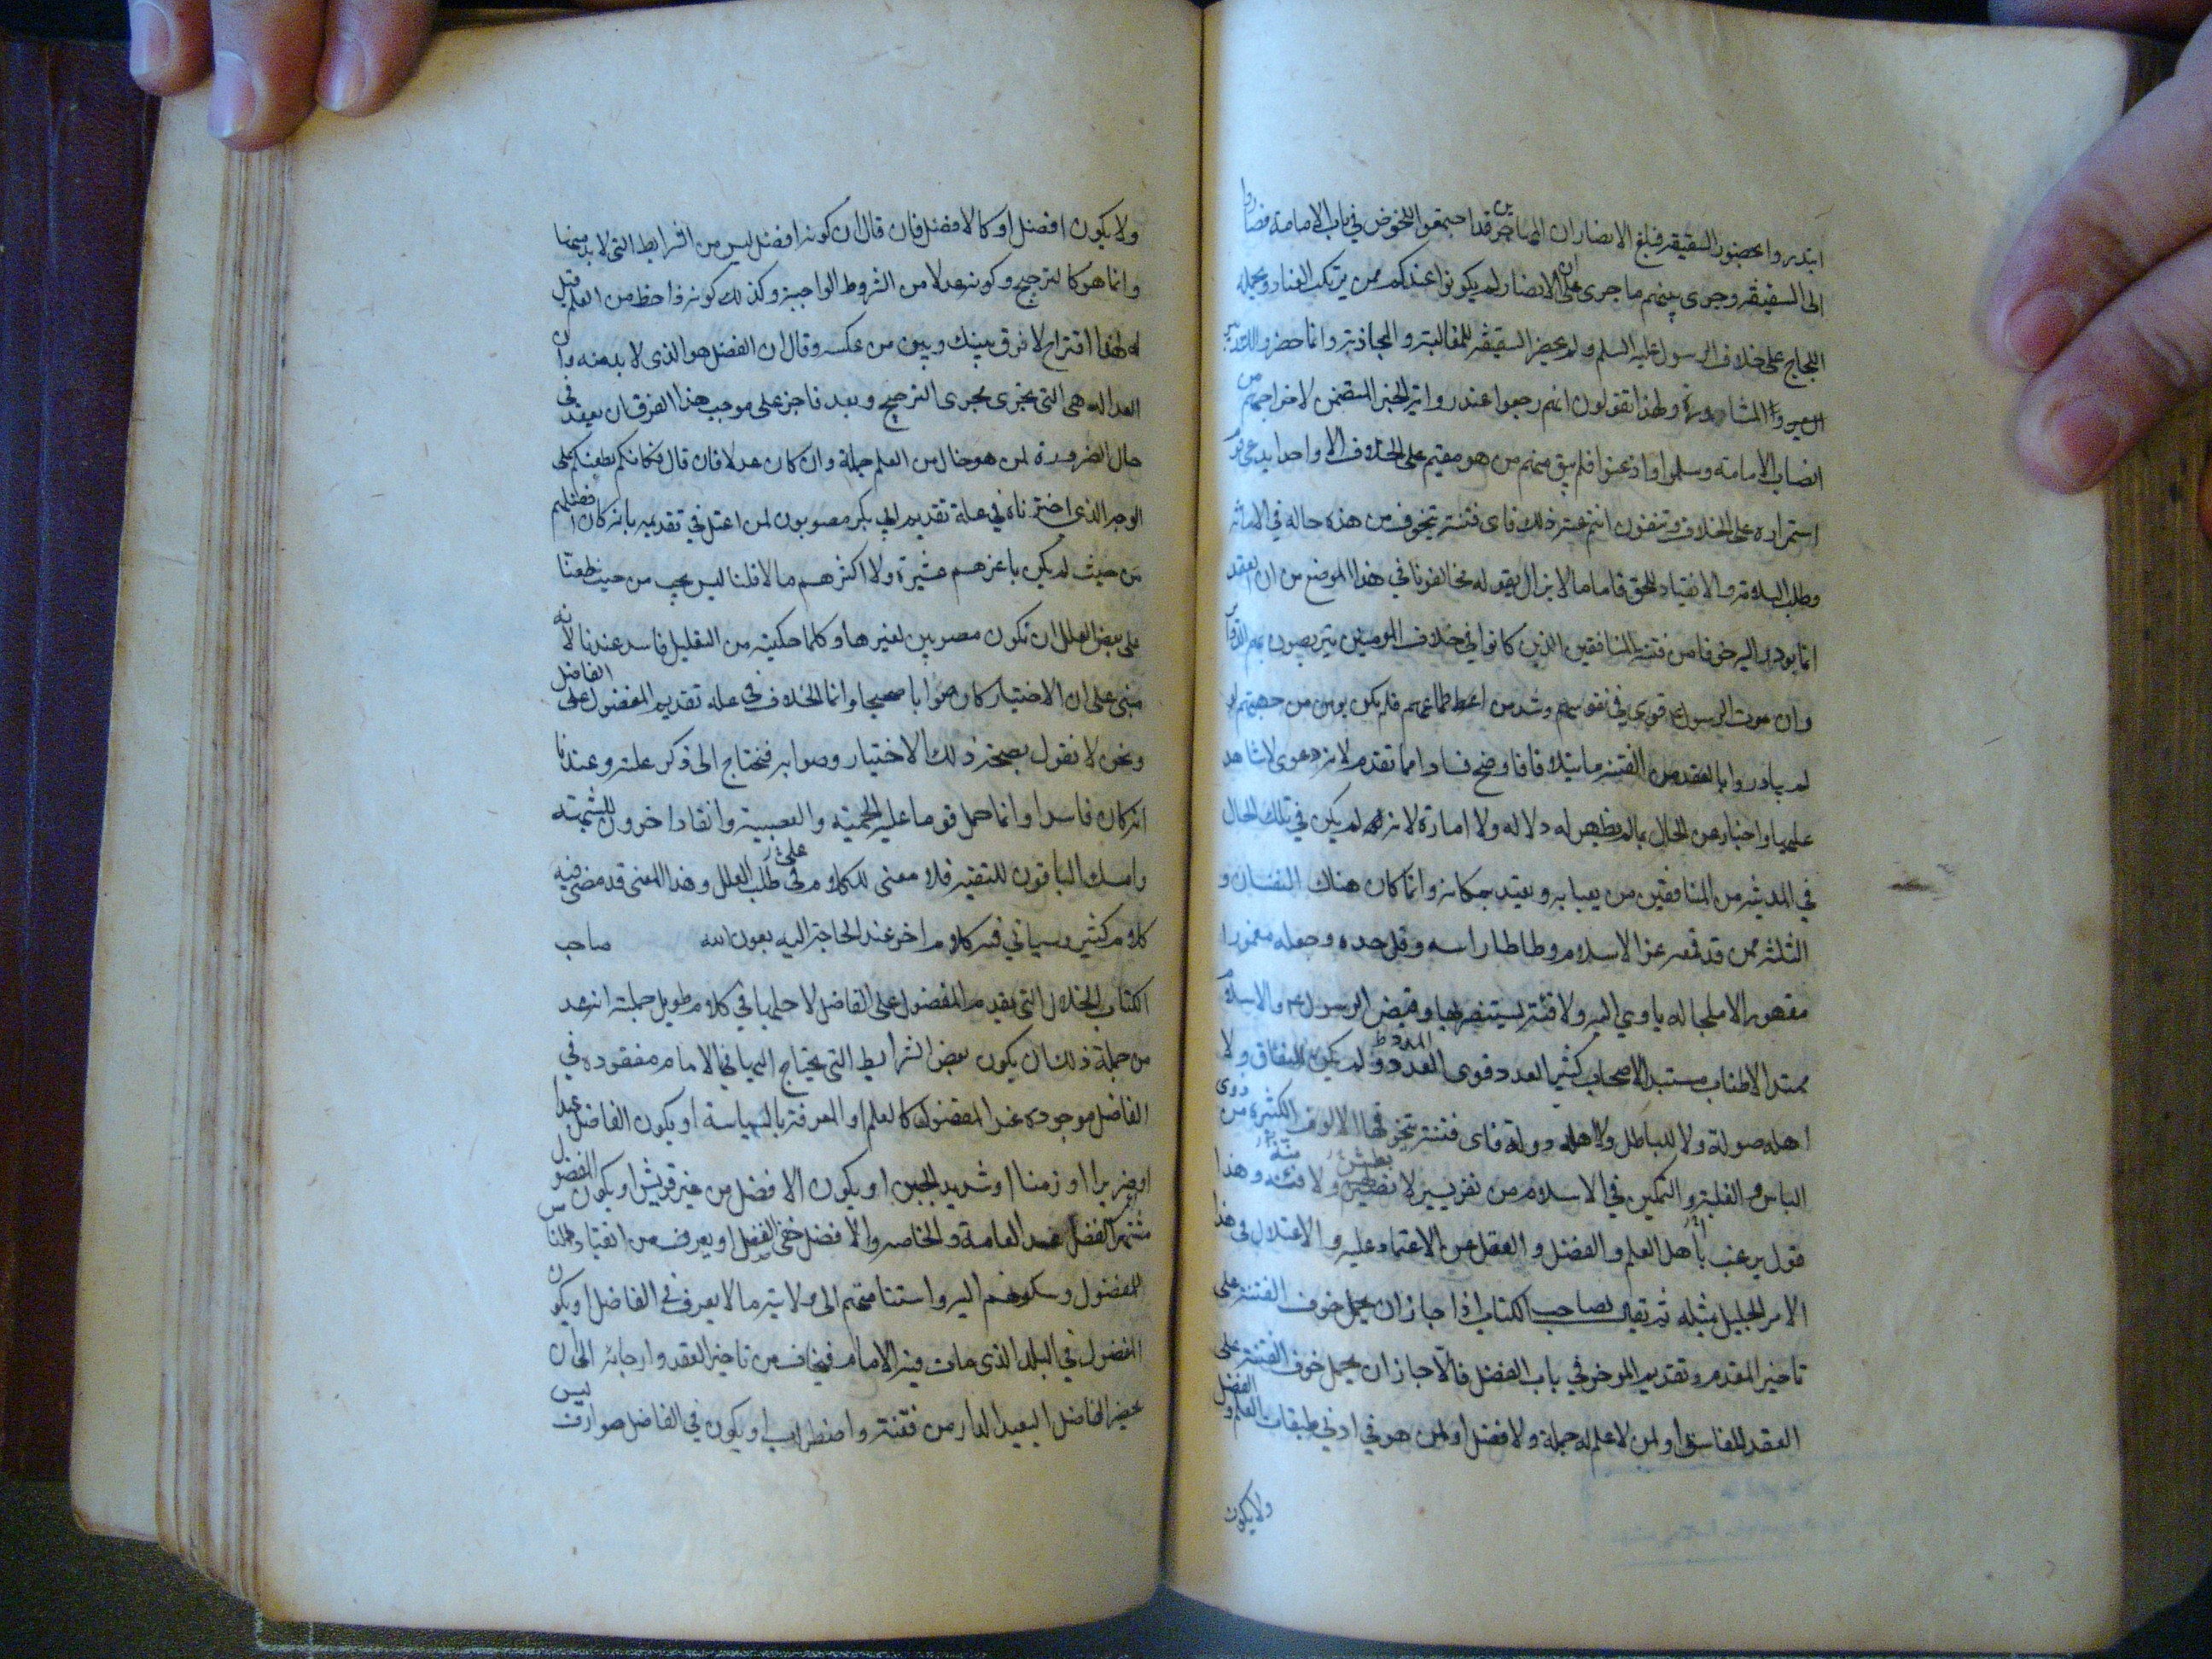 ابتدروا بحضور السقيفة فبلغ الانصار ان المهاجرين قد اجتمعوا للخوض في باب الامامة فصاروا
الى السقيفة وجرى بينهم ما جرى على ان الانصار لم يكونوا عندكم ممن يرتكب العناد ويحمله
اللجاج على خلاف الرسول عليه السلم ولم يحضر السقيفة للمغالبة والمجاذبة وانما حضروا للتدبير
والمشاورة ولهذا تقولون انهم رجعوا عند رواية الخبر المتضمن لاخراجهم من
انصاب الامامة وسلموا واذعنوا فلم يبق منهم من هو مقيم على الخلاف الا واحد يدعي قوم
استمراره على الخلاف وتنفون انتم عنه ذلك فاى فتنة تتخوف من هذه حاله في الاماثة
وطلب السلامة والانقياد للحق فاما ما لا يزال يقوله مخالفونا في هذا الموضع من ان العقد
انما بودر اليه خوفا من فتنة المنافقين الذين كانوا في خلاف المومنين يتربصون بهم الدواير
وان موت الرسول ع قوى في نفوسهم وشد من اطماعهم فلم يكن يومن من جهتهم لو
لم يبادروا بالعقد من الفتنة ما يتلافا فاوضح فسادا مما تقدم لانه دعوى لا شاهد
عليها واخبار عن الحال بما لم يظهر له دلاله ولا امارة لانه لم يكن في تلك الحال
في المدينه من المنافقين من يعبا به ويعتد بمكانه وانما كان هناك النفسان و
الثلثة ممن قد قمعه عز الاسلام وطاطا راسه وقل حده وجعله مغمورا
مقهورا لا ملجا له ياوي اليه ولا فئة يستنصر بها وقبض الرسول ع والاسلام
ممتد الاطناب مستبد الاصحاب كثير العدد قوى المدد ولم يكن للنفاق ولا
اهله صولة ولا للباطل ولاهله دولة فاى فتنة يتخوفها الالوف الكثيرة من ذوى
الباس والغلبة والتمكين في الاسلام من نفر يسير لا بطش ولا فئة وهذا
قول يرغب باهل العلم والفضل والعقل عن الاعتماد عليه والاعتلال في هذا
الامر الجليل بمثله ثم يقال لصاحب الكتاب اذا جاز ان يحمل خوف الفتنة على
تاخير المقدم وتقديم الموخر في باب الفضل فالّا جاز ان يحمل خوف الفتنة على
العقد للفاسق او لمن لا علم له جملة ولا فضل او لمن هو في ادنى طبقات العلم والفضل
ولا يكون
ولا يكون افضل او كالافضل فان قال ان كونه افضل ليس من الشرايط التي لا بد منها
وانما هو كالترجيح وكونه عدلا من الشروط الواجبة وكذلك كونه ذا حظ من العلم قيل
له هذا اقتراح لا فرق بينك وبين من عكسه وقال ان الفضل هو الذى لا بد منه وان
العدالة هي التي تجرى مجرى الترجيح وبعد فاجز على موجب هذا الفرق ان يعقد في
حال الضرورة لمن هو خال من العلم جملة وان كان عدلا فان قال فكانكم بطعنكم على
الوجه الذى اخترناه في علة تقديم ابي بكر مصوبون لمن اعتل في تقديمه بانه كان افضلهم
من حيث لم يكن باعزهم عشيرة ولا اكثرهم مالا قلنا ليس يجب من حيث طعنّا
على بعض العلل ان نكون مصوبين لغيرها وكلما حكيته من التعليل فاسد عندنا لانه
مبني على ان الاختيار كان صوابا صحيحا وانما الخلاف في علة تقديم المفضول على الفاضل
ونحن لا نقول بصحة ذلك الاختيار وصوابه فنحتاج الى ذكر علته وعندنا
انه كان فاسدا وانما حمل قوما عليه الحمية والعصبية وانقاد اخرون للشبهة
وامسك الباقون للتقية فلا معنى للكلام على طلب العلل وهذا المعنى قد مضى فيه
كلام كثير وسياتي فيه كلام اخر عند الحاجة اليه بعون الله صاحب
الكتاب الخلال التي يقدم المفضول على الفاضل لاجلها في كلام طويل جملته انه عد
من جملة ذلك ان يكون بعض الشرايط التي يحتاج اليها في الامام مفقوده في
الفاضل موجوده عند المفضول كالعلم او المعرفة بالسياسة او يكون الفاضل عبدا
او ضريرا او زمنا او شديد الجبن او يكون الافضل من غير قريش او يكون المفضول
مشتهر الفضل عند العامة والخاصه والافضل خفي الفضل او يعرف من انقياد الناس
للمفضول وسكونهم اليه واستنامتهم الى ولايته ما لا يعرف في الفاضل او يكون
المفضول في البلد الذى مات فيه الامام فيخاف من تاخير العقد وارجائه الى ان
يحضر الفاضل البعيد الدار من فتنة واضطراب او يكون في الفاضل صوارف ليس